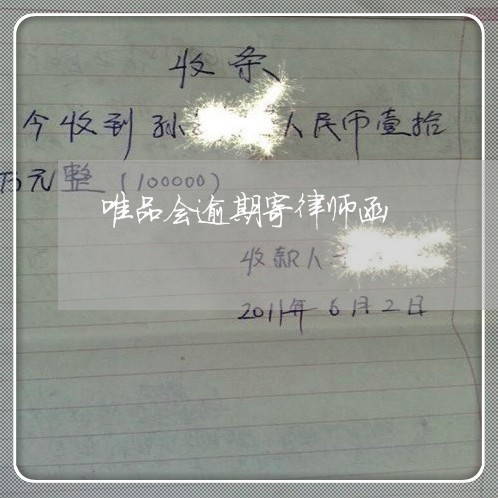 收条
今收到孙 人民币壹拾
万元整（100000）
唯品会逾期寄律师函
收款人
2011年6月2日